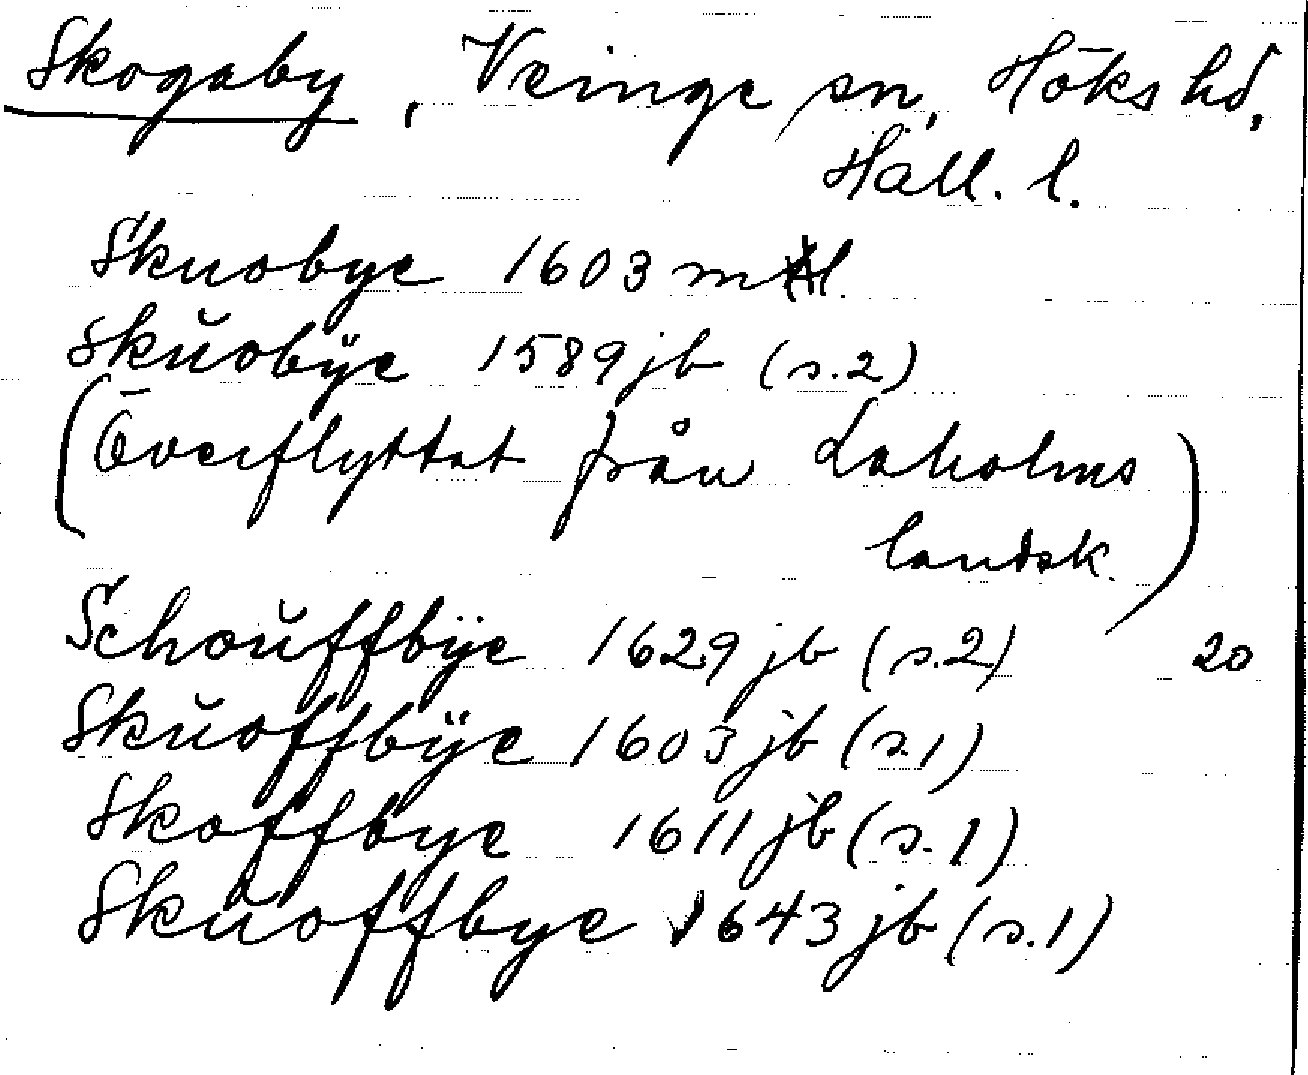 Skogaby, Veinge sn, Höks hd,
Hall. l.
Skuobye 1603 ml
Skŭobÿe 1589 jb (s.2)
(Överflyttat från Laholms
landsk.)
Schouŭffbÿe 1629 jb (s.2) 20
Skŭoffbÿe 1603 jb (s.1)
Skoffbye 1611 jb (s.1)
Skŭoffbye 1643 jb (s.1)